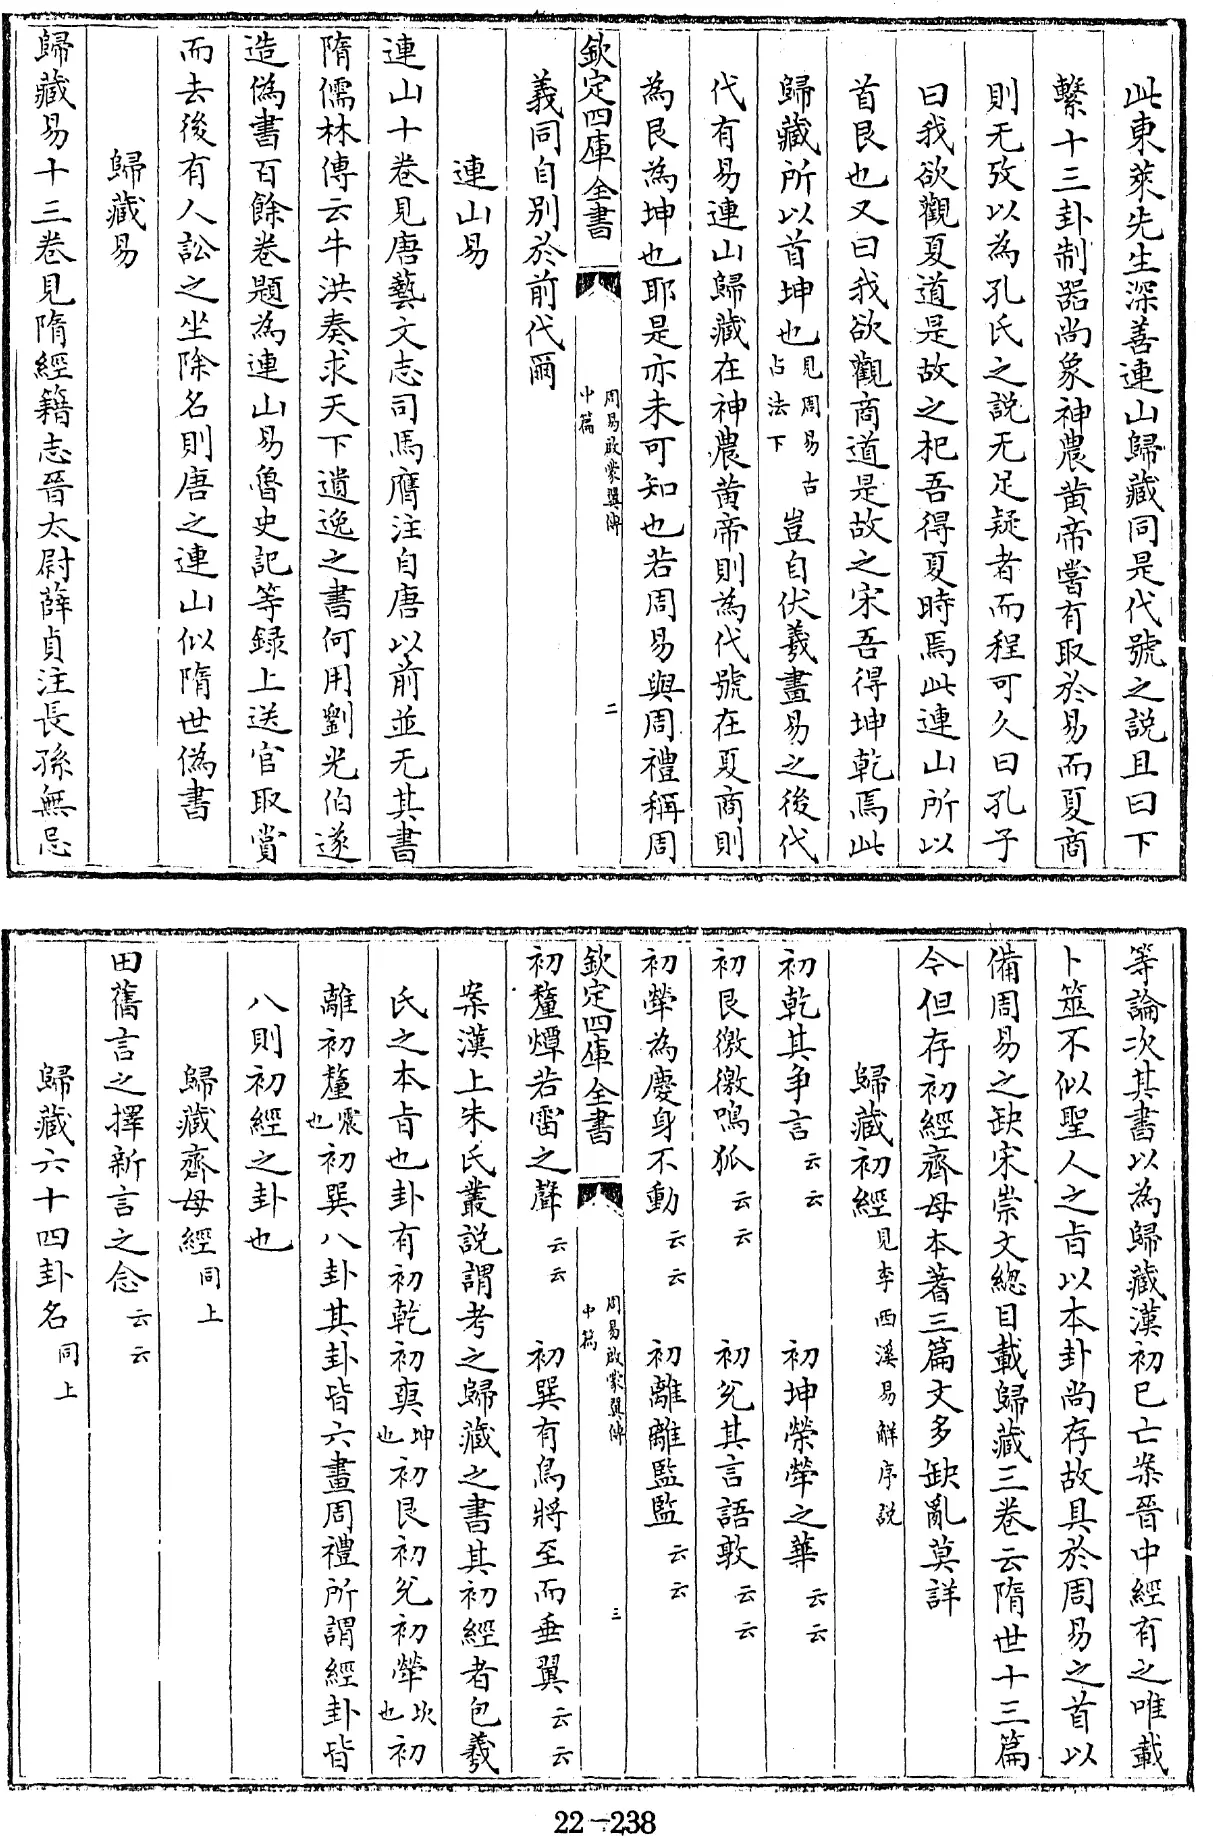 此東萊先生深善連山歸藏同是代號之説且曰下
繫十三卦制器尚象神農黄帝嘗有取於易而夏商
則无攷以為孔氏之説无足疑者而程可久曰孔子
曰我欲觀夏道是故之杞吾得夏時焉此連山所以
首艮也又曰我欲觀商道是故之宋吾得坤乾焉此
歸藏所以首坤也見周易古占法下豈自伏羲畫易之後代
代有易連山歸藏在神農黄帝則為代號在夏商則
為艮為坤也耶是亦未可知也若周易與周禮稱周
欽定四庫全書 周易啟蒙翼傳中篇 二
義同自别於前代爾
連山易
連山十卷見唐藝文志司馬膺注自唐以前並无其書
隋儒林傳云牛洪奏求天下遺逸之書何用劉光伯遂
造偽書百餘卷題為連山易魯史記等録上送官取賞
而去後有人訟之坐除名則唐之連山似隋世偽書
歸藏易
歸藏易十三卷見隋經籍志晉太尉薛貞注長孫無忌
等論次其書以為歸藏漢初已亡案晉中經有之唯載
卜筮不似聖人之旨以本卦尚存故具於周易之首以
備周易之缺宋崇文總目載歸藏三卷云隋世十三篇
今但存初經齊母本蓍三篇文多缺亂莫詳
歸藏初經見李西溪易解序説
初乾其争言云云 初坤榮犖之華云云
初艮徼徼鳴狐云云 初兊其言語敦云云
初犖為慶身不動云云 初離離監監云云
欽定四庫全書 周易啟蒙翼傳中篇 三
初釐燂若雷之聲云云 初巽有鳥將至而垂翼云云
案漢上朱氏叢説謂考之歸藏之書其初經者包羲
氏之本旨也卦有初乾初奭坤也初艮初兊初犖坎也初
離初釐震也初巽八卦其卦皆六畫周禮所謂經卦皆
八則初經之卦也
歸藏齊母經同上
田舊言之擇新言之念云云
歸藏六十四卦名同上
22-238